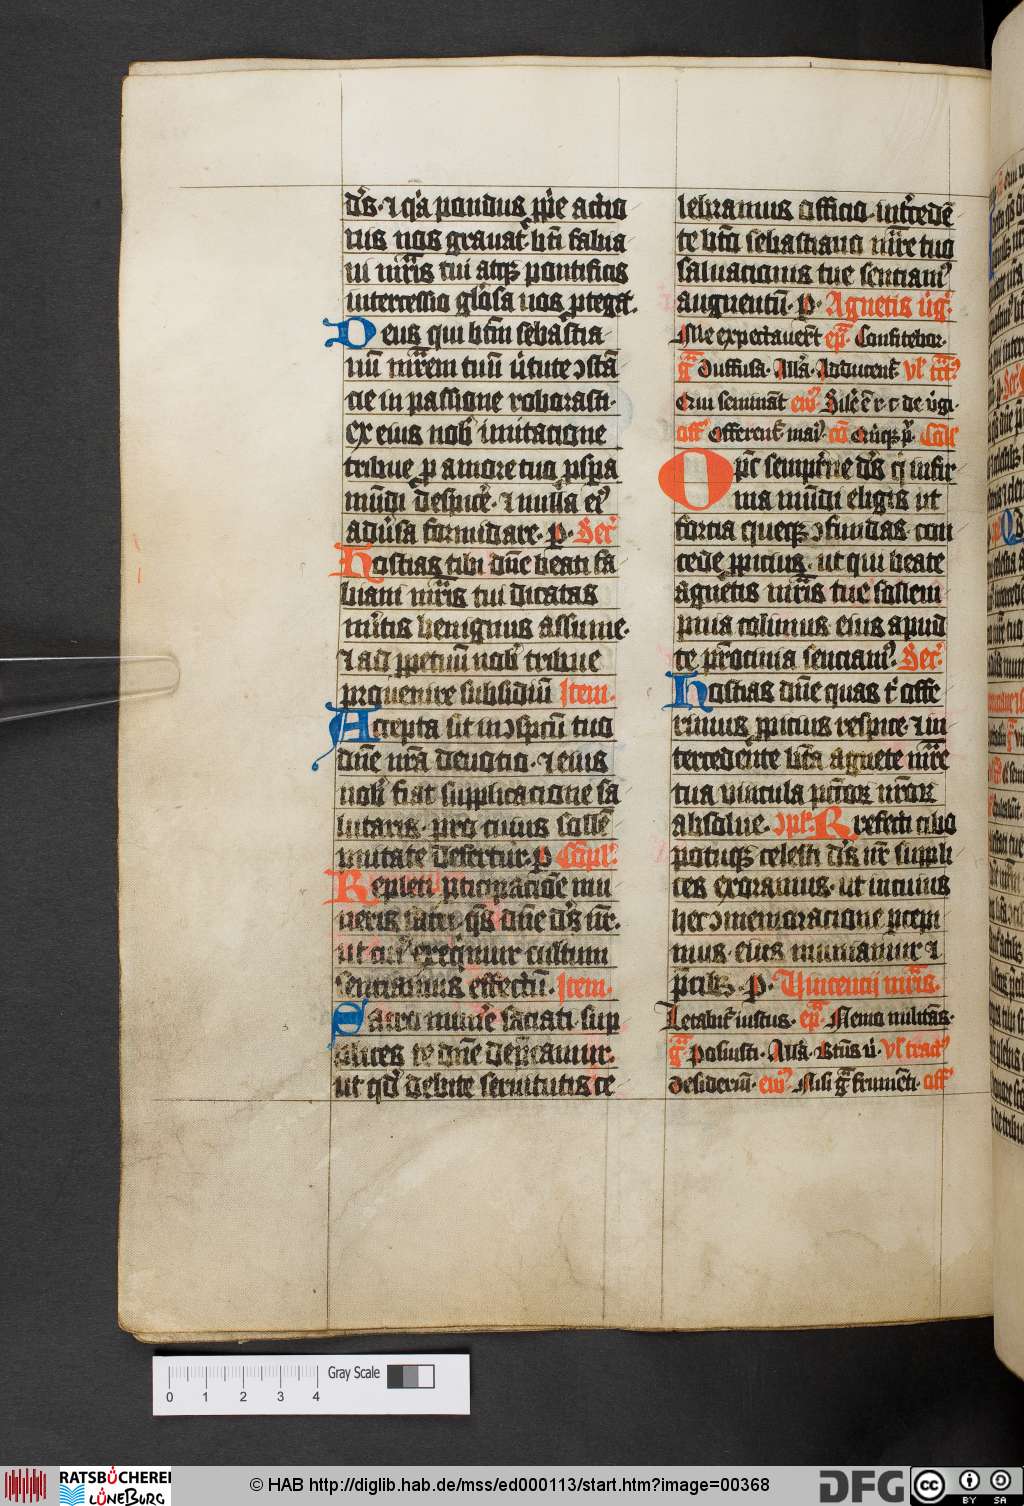 ds · ⁊ qa pondus pprie actio
nis nos grauat bti fabia
ni mris tui atqz pontificis
intercessio glosa nos ptegat.
Deus qui btm sebastia
num mrem tuum utute ɔstan
cie in passione roborasti.
ex eius nob imitacione
tribue p amore tuo pspa
mundi despicere · ⁊ nulla ei9
aduersa formidare · p · Secr
Hostias tibi dne beati fa
biani mris tui dicatas
mitis benignus assume ·
⁊ ad ppetuum nob tribue
prouenire subsidium Item ·
Accepta sit in ɔspectu tuo
dne nra deuotio · ⁊ eius
nob fiat supplicacione sa
lutaris · pro cuius sollen
nitate defertur · p Compl
Repleti pticipacione mu
neris sacri · qs dne ds nr ·
ut cui9 exequimur cultum
senciamus effectum · Item ·
Sacro munere saciati · sup
plices te dne deprecamur ·
ut qd debite seruitutis ce
lebramus officio · intercedente
te bto sebastiano mre tuo
saluacionis tue senciam9
augmentum · p · Agnetis uirg
Me expectauert ep Confitebor ·
gr Diffusa · Alla · Adducent ul tract9
Qui seminant ew Sile e r c de uigi ·
off Offerent maior co Quinqz p · Colle
Omps sempiterne ds qi infir
ma mundi eligis ut
forcia queqz ɔfundas · con
cede ppicius · ut qui beate
agnetis mris tue sollem
pnia colimus · eius apud
te procinia senciam9 · Secr
Hostias dne quas ti offe
rimus ppicius respice · ⁊ in
tercedente bta agnete mre
tua vincula pctorum nrorum
absolue · ɔpl · Refecti cibo
potuqz celesti ds nr suppli
ces exoramus · ut in cuius
hec ɔmemoracione pcepi
mus · eius muniamur ⁊
pcibz · p · Vincencii mris ·
Letabit iustus · ep Nemo militans ·
gr Posuisti · Alla · Btus u · ul tract9
Desiderium · ew Nisi gr frumenti · off
Gray Scale
0 1 2 3 4
RATSBÜCHEREI
LÜNEBURG
© HAB http://diglib.hab.de/mss/ed000113/start.htm?image=00368
DFG
cc BY SA